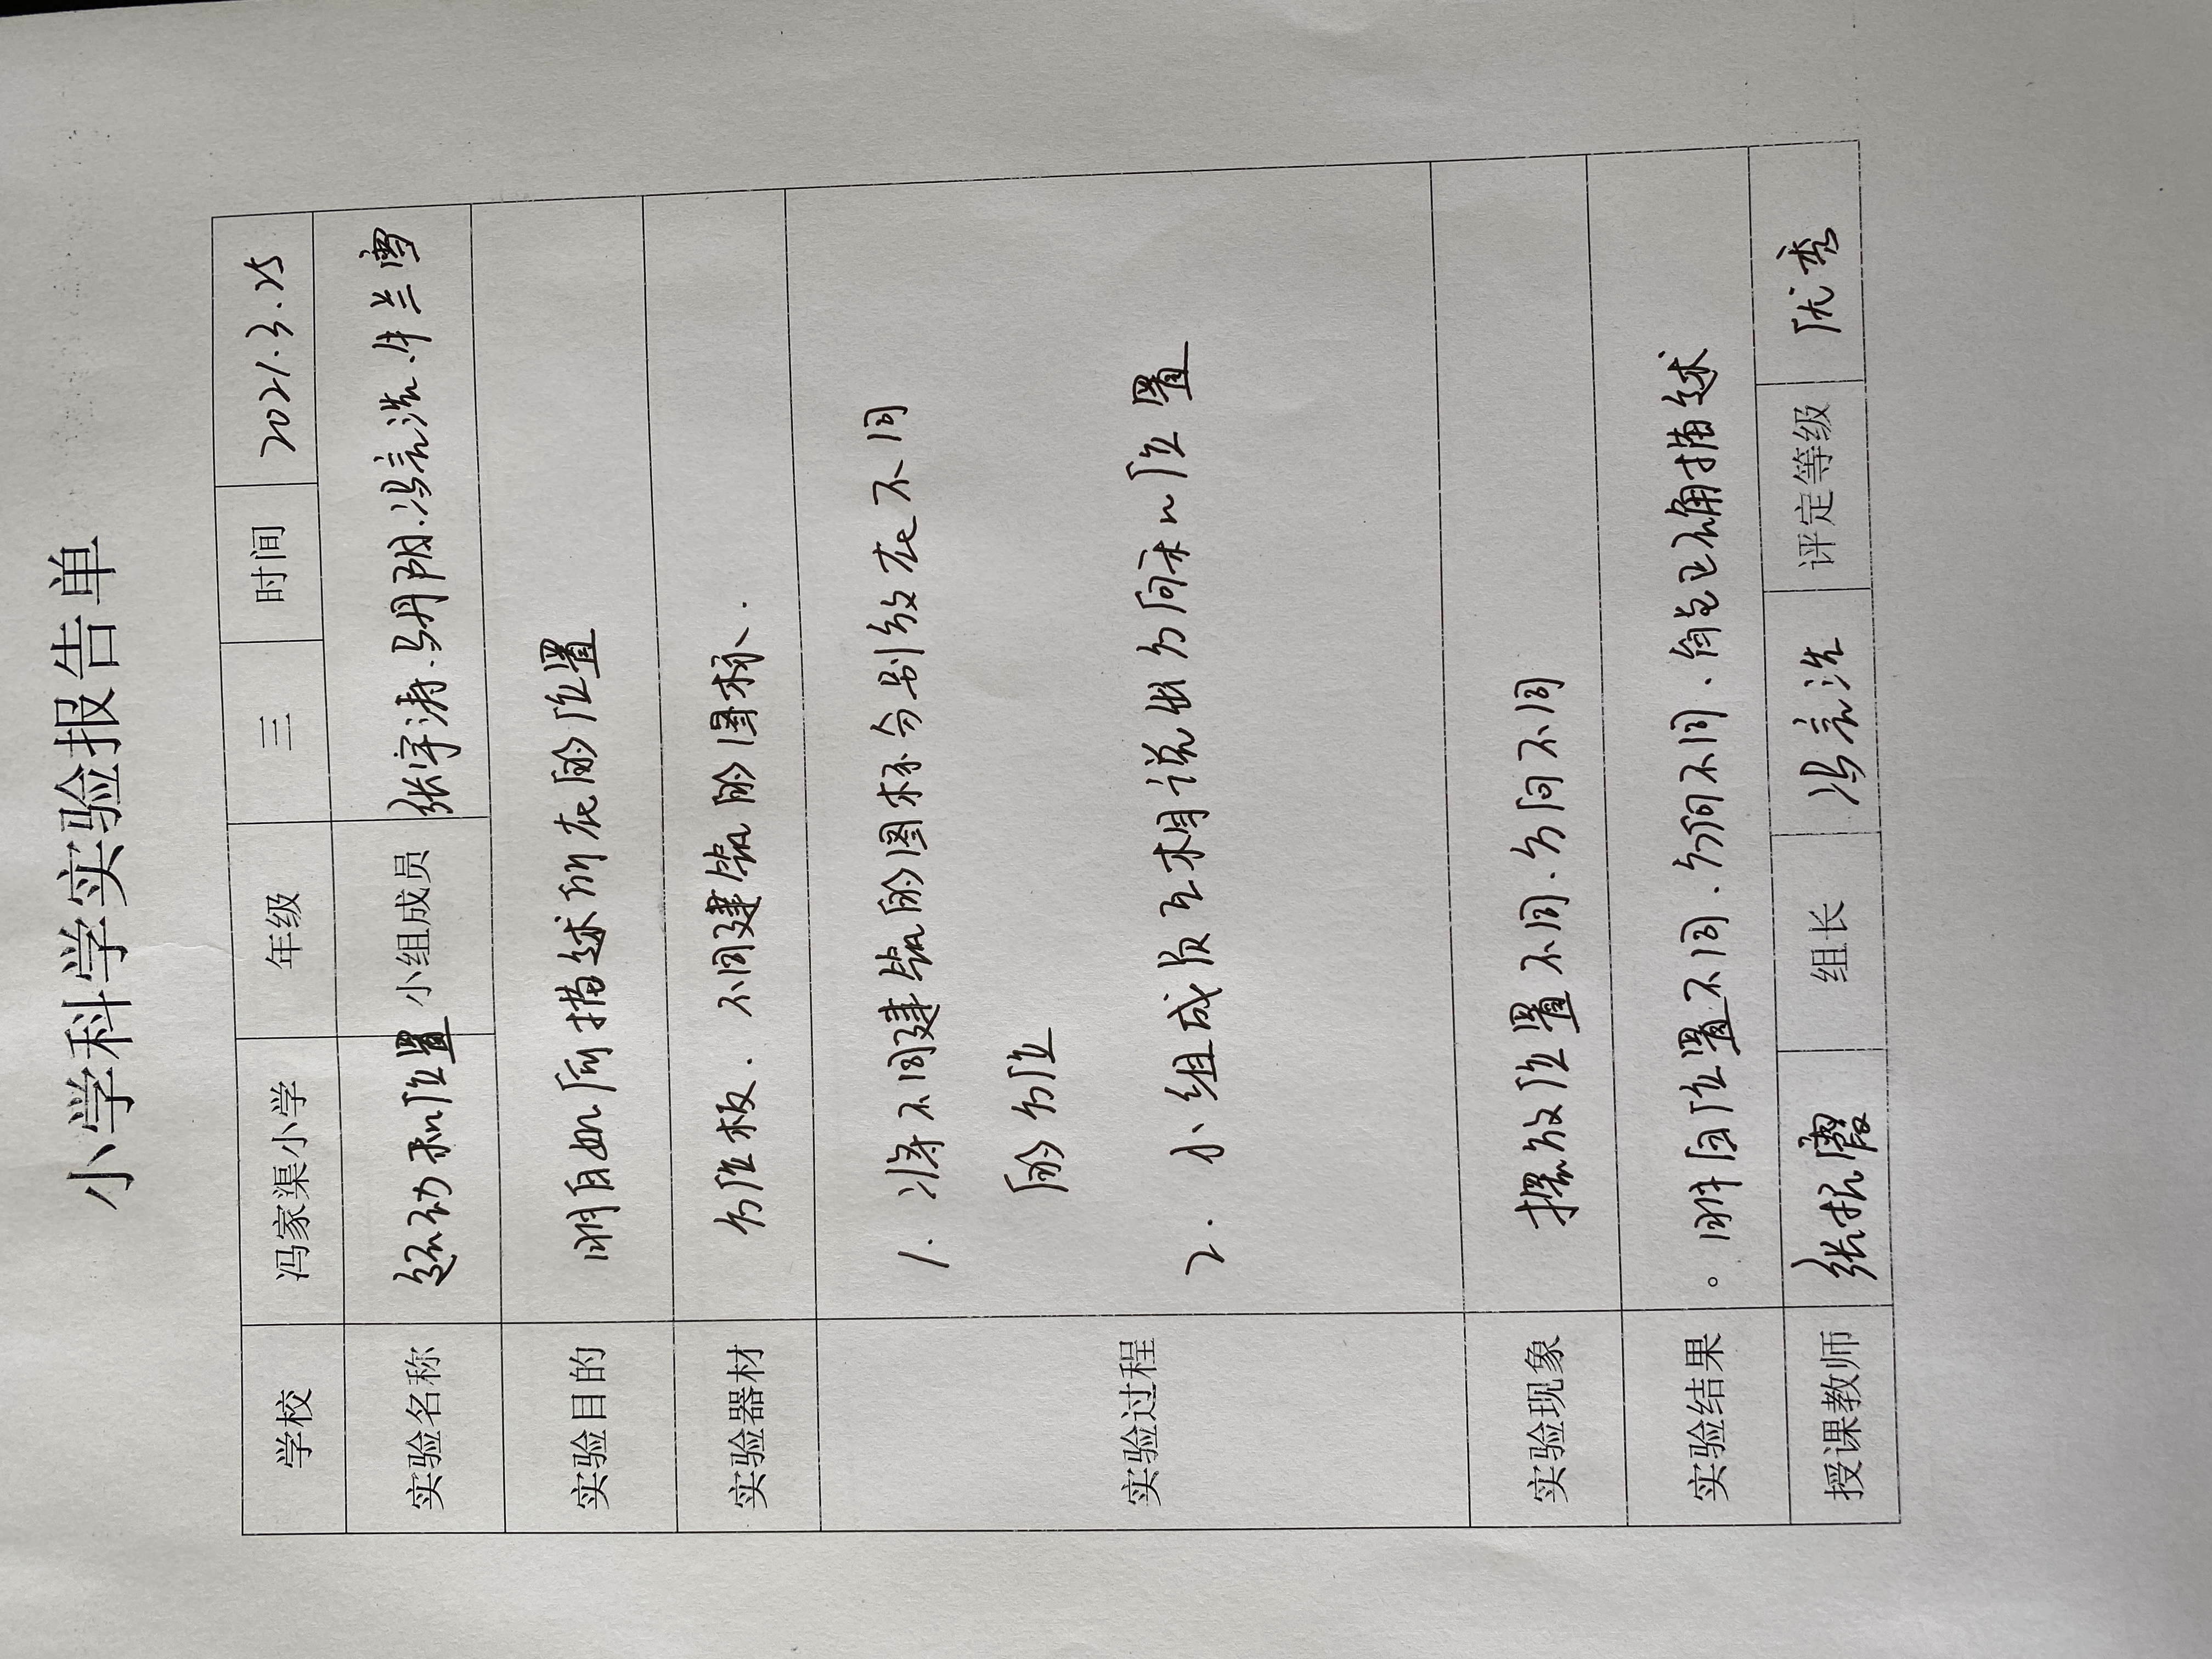 小学科学实验报告单
学校 冯家渠小学 年级 三 时间 2021.3.25
实验名称 运动和位置 小组成员 张宇涛.马丹阳.冯志浩.牛兰雪
实验目的 明白如何描述所在的位置
实验器材 方位板. 不同建筑的图标.
实验过程
1. 将不同建筑的图标分别放在不同
的方位
2. 小组成员互相说出方向和位置
实验现象 摆放位置不同.方向不同
实验结果 。明白位置不同.方向不同、能正确描述
授课教师 张振霞 组长 冯志浩 评定等级 优秀